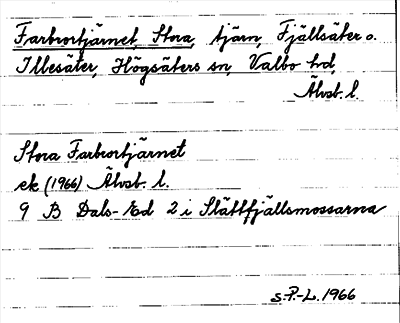 Farbrortjärnet, Stora, tjärn, Fjällsäter o.
Illesäter, Högsäters sn, Valbo hd,
Älvsb. l.
Stora Farbrortjärnet
ek (1966) Älvsb. l.
9 B Dals-Ed 2 i Slättfjällsmossarna
S.P.-L. 1966